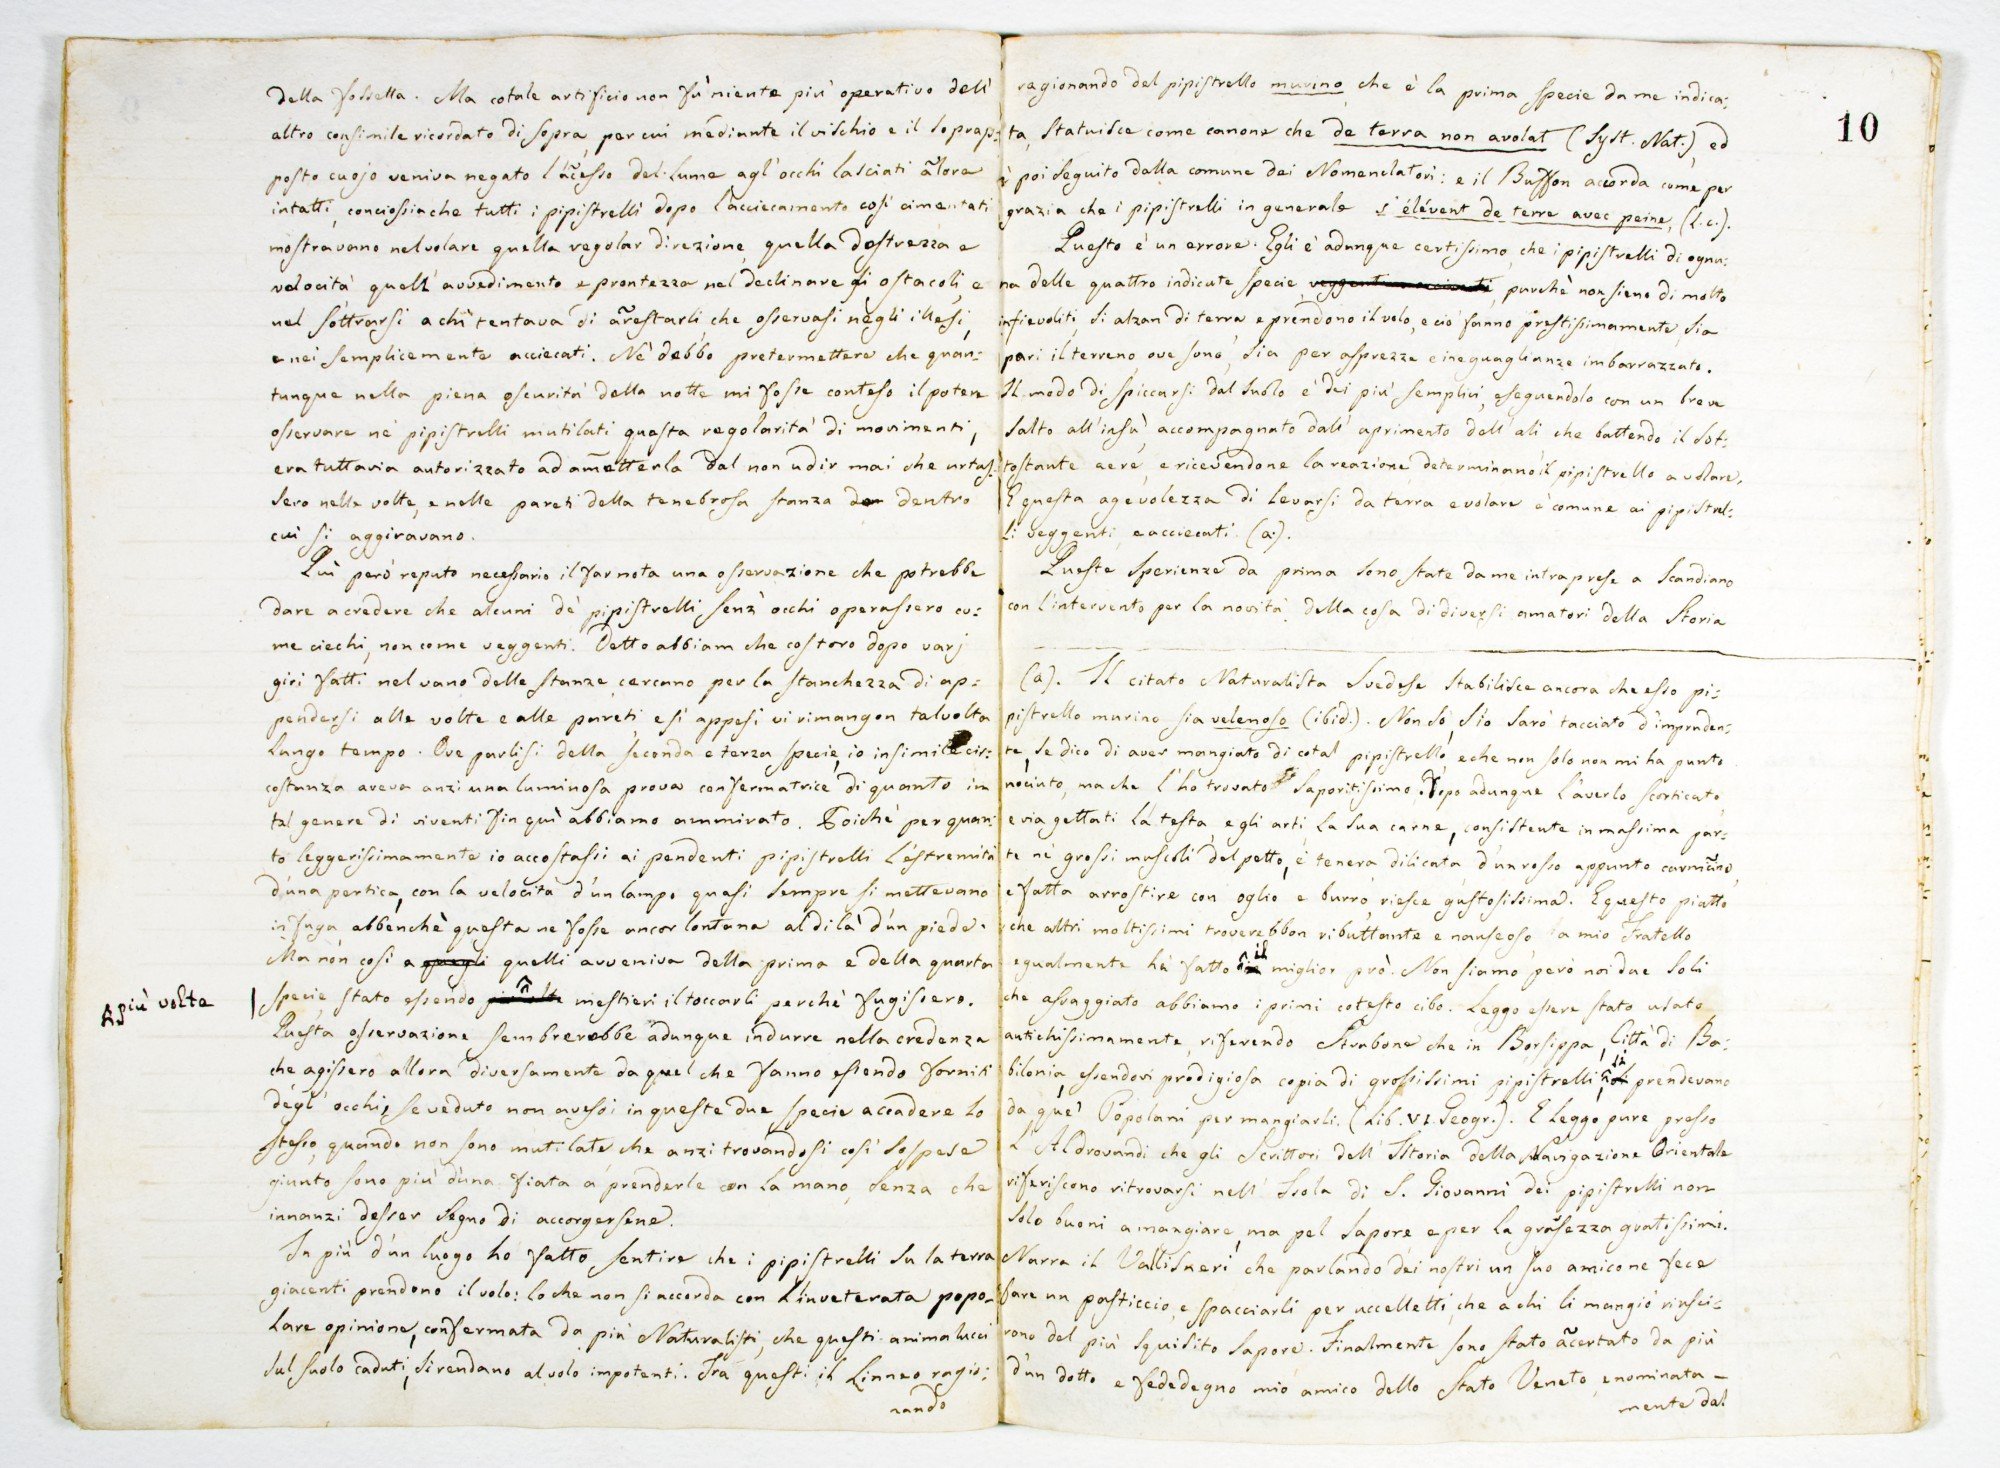 della fossella. Ma cotale artificio non fù niente più operativo dell'
altro consimile ricordato di sopra, per cui mediante il vischio e il soprap=
posto cuojo veniva negato l'acesso del lume agl'occhi lasciati alora
intatti, conciossiache tutti i pipistrelli dopo l'acciecamento così cimentati
mostravano nel volare quella regolar direzione, quella destrezza e
velocità quell'avvedimento e prontezza nel declinare gli ostacoli, e
nel sottrarsi a chi tentava di arestarli che osservasi negli illesi,
e nei semplicemente acciecati. Nè debbo pretermettere che quan=
tunque nella piena oscurità della notte mi fosse conteso il potere
osservare ne' pipistrelli mutilati questa regolarità di movimenti,
era tuttavia autorizzato ad ametterla dal non udir mai che urtas=
sero nelle volte, e nelle pareti della tenebrosa stanza dentro
cui si aggiravano.
Quì però reputo necessario il far nota una osservazione che potrebbe
dare a credere che alcuni de' pipistrelli senz'occhi operassero co=
me ciechi, non come veggenti. Detto abbiam che costoro dopo varj
giri fatti nel vano delle stanze cercano per la stanchezza di ap=
pendersi alle volte e alle pareti e sì appesi vi rimangon talvolta
lungo tempo. Ove parlisi della seconda e terza specie, io in simile cir=
costanza aveva anzi una luminosa prova confermatrice di quanto in
tal genere di viventi fin quì abbiamo ammirato. Poichè per quan=
to leggerissimamente io accostassi ai pendenti pipistrelli l'estremità
d'una pertica, con la velocità d'un lampo quasi sempre si mettevano
in fuga abbenchè questa ne fosse ancor lontana al di là d'un piede.
Ma non così a quegli quelli avveniva della prima e della quarta
A più volte
specie stato essendo più volte ^ mestieri il toccarli perchè fugissero.
Questa osservazione sembrerebbe adunque indurre nella credenza
che agissero allora diversamente da quel che fanno essendo forniti
degl'occhi, se veduto non avessi in queste due specie accadere lo
stesso, quando non sono mutilate che anzi trovandosi così sospese
giunto sono più d'una fiata a prenderle con la mano, senza che
innanzi desser segno di accorgersene.
In più d'un luogo ho fatto sentire che i pipistrelli su la terra
giacenti prendono il volo: lo che non si accorda con l'inveterata popo=
lare opinione, confermata da più Naturalisti, che questi animalucci
sul suolo caduti, si rendano al volo impotenti. Tra questi il Linneo ragio;
nando
10
ragionando del pipistrello murino che è la prima specie da me indica=
ta, statuisce come canone che de terra non avolat (Syst. Nat.), ed
è poi seguito dalla comune dei Nomenclatori: e il Buffon accorda come per
grazia che i pipistrelli in generale s'élévent de terre avec peine, (l.c.).
Questo è un errore. Egli è adunque certissimo, che i pipistrelli di ognu=
na delle quattro indicate specie veggenti, purchè non sieno di molto
infievoliti, si alzan di terra e prendono il volo, e ciò fanno prestissimamente, sia
pari il terreno, ove sono, sia per asprezze e ineguaglianze imbarrazzato.
Il modo di spiccarsi dal suolo è dei più semplici, eseguendolo con un breve
salto all'insù accompagnato dall'aprimento dell'ali che battendo il sot=
tostante aere, e ricevendone la reazione determinano il pipistrello a volare.
E questa agevolezza di levarsi da terra e volare è comune ai pipistrel=
li veggenti, e acciecati. (a).
Queste sperienze da prima sono state da me intraprese a Scandiano
con l'intervento per la novità della cosa di diversi amatori della Storia
(a). Il citato Naturalista Svedese stabilisce ancora che esso pi=
pistrello murino sia velenoso (ibid.). Non sò, s'io sarò tacciato d'impruden=
te, se dico di aver mangiato di cotal pipistrello, e che non solo non mi ha punto
nociuto, ma che l'ho trovato saporitissimo. Dopo adunque l'averlo scorticato,
e via gettati la testa, e gli arti la sua carne, consistente in massima par=
te ne' grossi muscoli del petto, è tenera dilicata d'un rosso appunto carmino,
e fatta arrostire con oglio e burro riesce gustosissima. E questo piatto
che altri moltissimi troverebbon ributtante e nauseoso a mio Fratello
egualmente ha fatto il miglior prò. Non siamo però noi due soli
che assaggiato abbiamo i primi cotesto cibo. Leggo essere stato usato
antichissimamente, riferendo Strabone che in Borsippa, Città di Ba=
bilonia, essendovi prodigiosa copia di grossissimi pipistrelli, si prendevano
da que' Popolani per mangiarli. (Lib. VI. Geogr.). E leggo pure presso
l'Aldrovandi che gli Scrittori dell'Istoria della Navigazione Orientale
riferiscono ritrovarsi nell'Isola di S. Giovanni dei pipistrelli non
solo buoni a mangiare, ma pel sapore e per la grassezza gratissimi.
Narra il Vallisneri che parlando dei nostri un suo amico ne fece
fare un pasticcio, e spacciarli per uccelletti, che a chi li mangiò riusci=
rono del più squisito sapore. Finalmente sono stato acertato da più
d'un dotto e fededegno mio amico dello Stato Veneto, e nominata=
mente dal